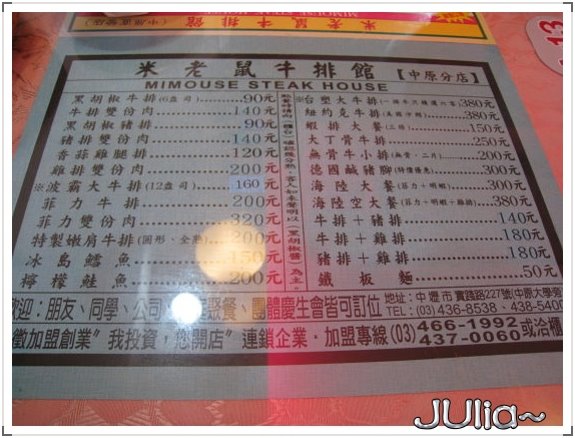 米老鼠牛排館
MIMOUSE STEAK HOUSE
13
米老鼠牛排館【中原分店】
MIMOUSE STEAK HOUSE
黑胡椒牛排(6盎司)..........90元
牛排雙份肉..........140元
黑胡椒豬排..........90元
豬排雙份肉..........140元
香蒜雞腿排..........120元
雞排雙份肉..........200元
※波霸大牛排(12盎司)..........160元
菲力牛排..........200元
菲力雙份肉..........320元
特製嫩肩牛排(圓形、全熟)..........200元
冰島鱈魚..........150元
檸檬鮭魚..........200元
※台塑大牛排..........380元
紐約克牛排..........380元
蝦排大餐..........150元
大丁骨牛排..........250元
無骨牛小排..........200元
德國鹹豬腳..........300元
海陸大餐(菲力+明蝦)..........300元
海陸空大餐..........380元
牛排+豬排..........140元
牛排+雞排..........180元
豬排+雞排..........180元
鐵板麵..........50元
歡迎：朋友、同學、公司聚餐、團體慶生會皆可訂位
地址：中壢市實踐路227號(中原大學旁
TEL：(03)436-8538、438-540
徵加盟創業"我投資，您開店"連鎖企業．加盟專線(03)466-1992
437-0060或洽櫃
JUlia~